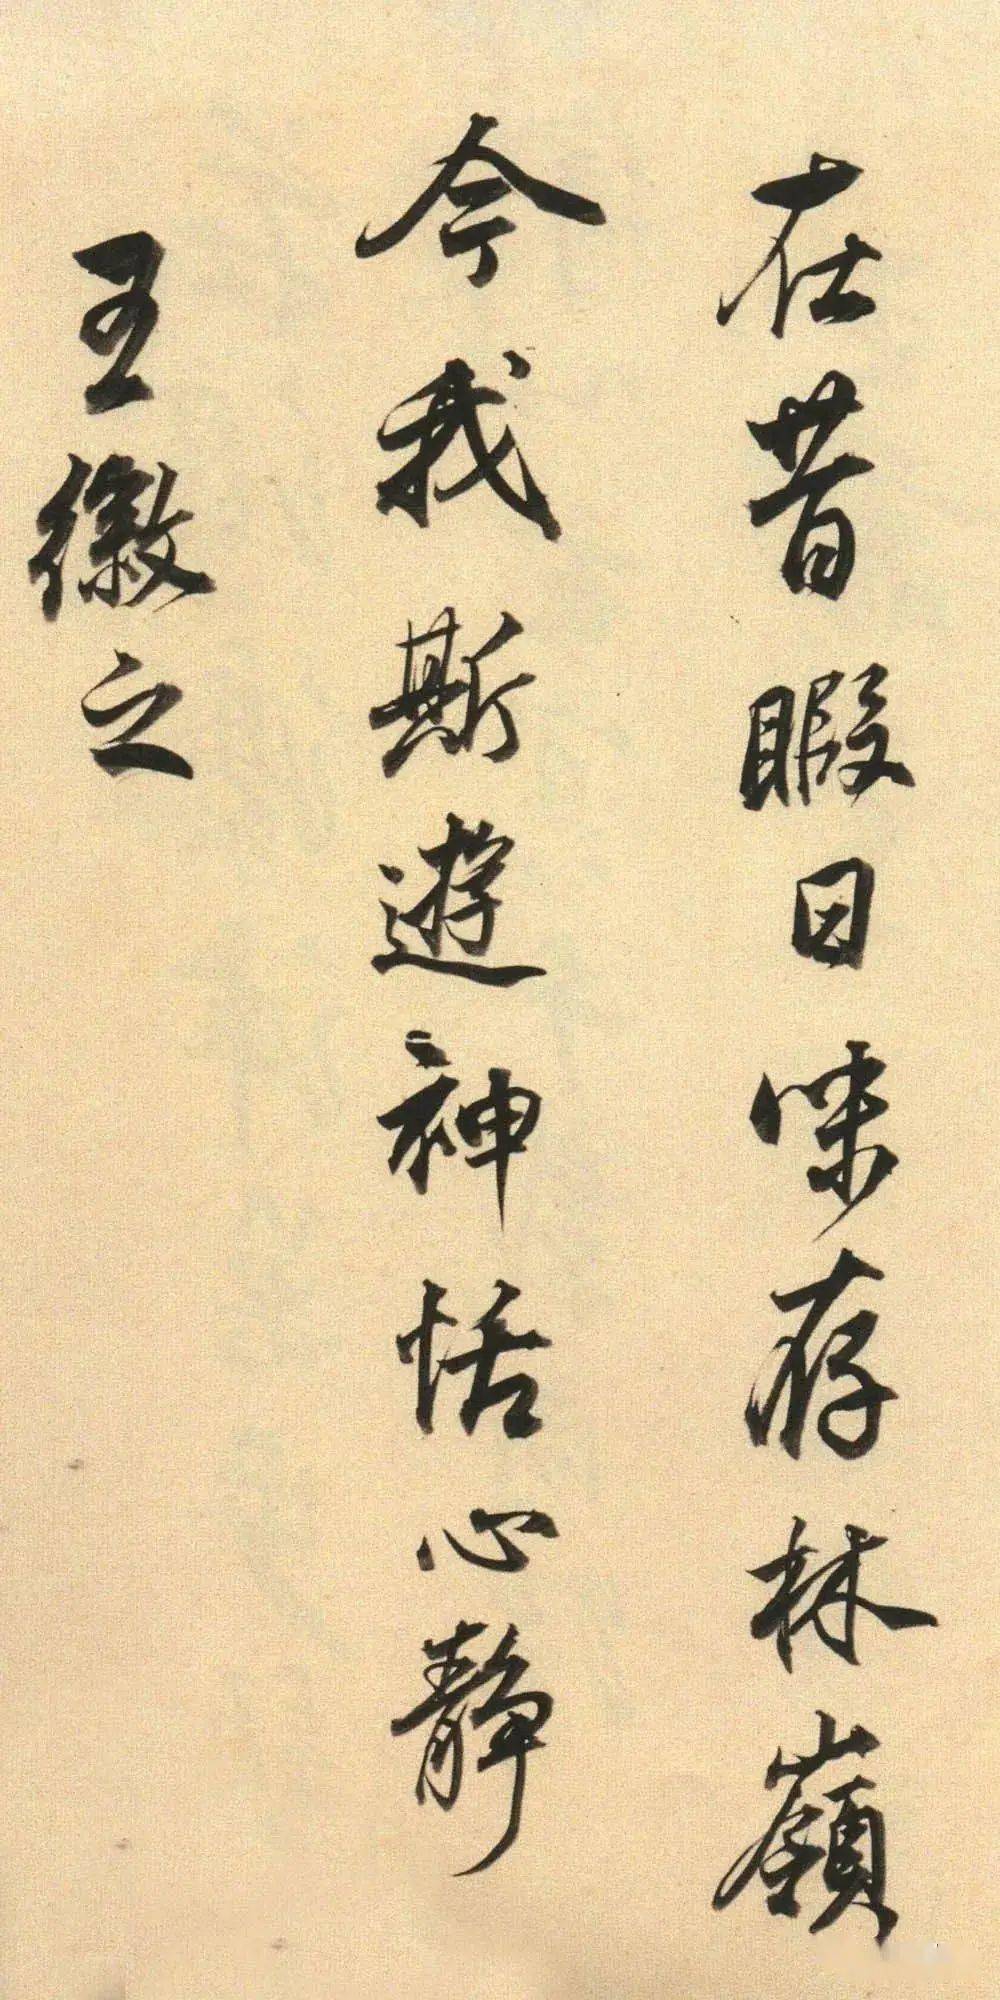 在昔暇日味存林嶺
今我斯遊神恬心静
王徽之